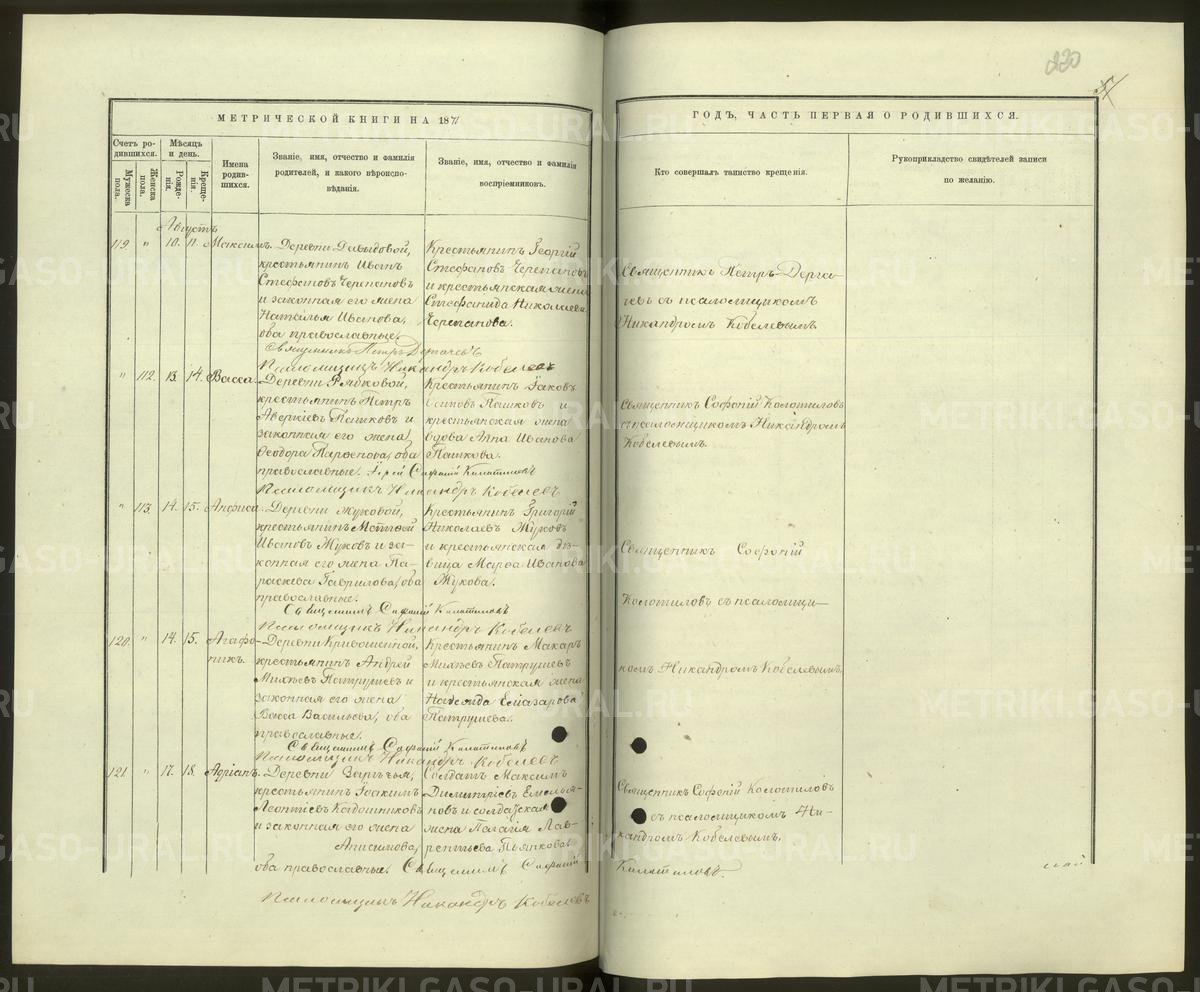 220
МЕТРИЧЕСКОЙ КНИГИ НА 1871
ГОДЪ, ЧАСТЬ ПЕРВАЯ О РОДИВШИХСЯ.
Счетъ родившихся.
Мужеска пола.
Женска пола.
Мѣсяцъ и день.
Рожденія.
Крещенія.
Имена родившихся.
Званіе, имя, отчество и фамилія родителей, и какого вѣроисповѣданія.
Званіе, имя, отчество и фамилія воспріемниковъ.
Кто совершалъ таинство крещенія.
Рукоприкладство свидѣтелей записи по желанію.
Августъ
119. " 10. 11. Максимъ.
Деревни Давыдовой,
крестьянинъ Иванъ
Стефановъ Черепановъ
и законная его жена
Наталья Иванова,
оба православные.
Крестьянинъ Георгій
Стефановъ Черепановъ
и крестьянская жена
Стефанида Николаева
Черепанова.
Священникъ Петръ Дерга-
чевъ съ псаломщикомъ
Никандромъ Кобелевымъ
Священникъ Петръ Дергачевъ
Псаломщикъ Никандръ Кобелевъ
" 112. 13. 14. Васса.
Деревни Рябковой,
крестьянинъ Петръ
Аверкіевъ Пашковъ и
законная его жена
Ѳеодора Парѳенова, оба
православные.
Крестьянинъ Іаковъ
Осиповъ Пашковъ и
крестьянская жена
вдова Анна Иванова
Пашкова.
Священникъ Софоній Колотиловъ
съ псаломщикомъ Никандромъ
Кобелевымъ.
Іерей Софоній Колотиловъ
Псаломщикъ Никандръ Кобелевъ
" 113. 14. 15. Анфиса.
Деревни Жуковой,
крестьянинъ Матѳей
Ивановъ Жуковъ и за-
конная его жена Па-
раскева Гаврилова, оба
православные.
Крестьянинъ Григорій
Николаевъ Жуковъ
и крестьянская дѣ-
вица Марѳа Иванова
Жукова.
Священникъ Софоній
Колотиловъ съ псаломщи-
комъ Никандромъ Кобелевымъ.
Священникъ Софоній Колотиловъ
Псаломщикъ Никандръ Кобелевъ
120. " 14. 15. Агафо-
никъ.
Деревни Кривошеиной,
крестьянинъ Андрей
Михѣевъ Патрушевъ и
законная его жена
Васса Васильева, оба
православные.
Крестьянинъ Макаръ
Михѣевъ Патрушевъ
и крестьянская жена
Надежда Елиазарова
Патрушева.
Священникъ Софоній Колотиловъ
Псаломщикъ Никандръ Кобелевъ
121. " 17. 18. Адріанъ.
Деревни
крестьянинъ Іоакимъ
Леонтіевъ Кадошниковъ
и законная его жена
Анисимова,
оба православные.
Солдатъ Максимъ
Димитріевъ Емелья-
новъ и солдатская
жена Пелагія Лав-
рентьева Пьянкова.
Священникъ Софоній Колотиловъ
съ псаломщикомъ Ни-
кандромъ Кобелевымъ.
Священникъ Софоній
Колотиловъ.
Псаломщикъ Никандръ Кобелевъ
METRIKI.GASO-URAL.RU